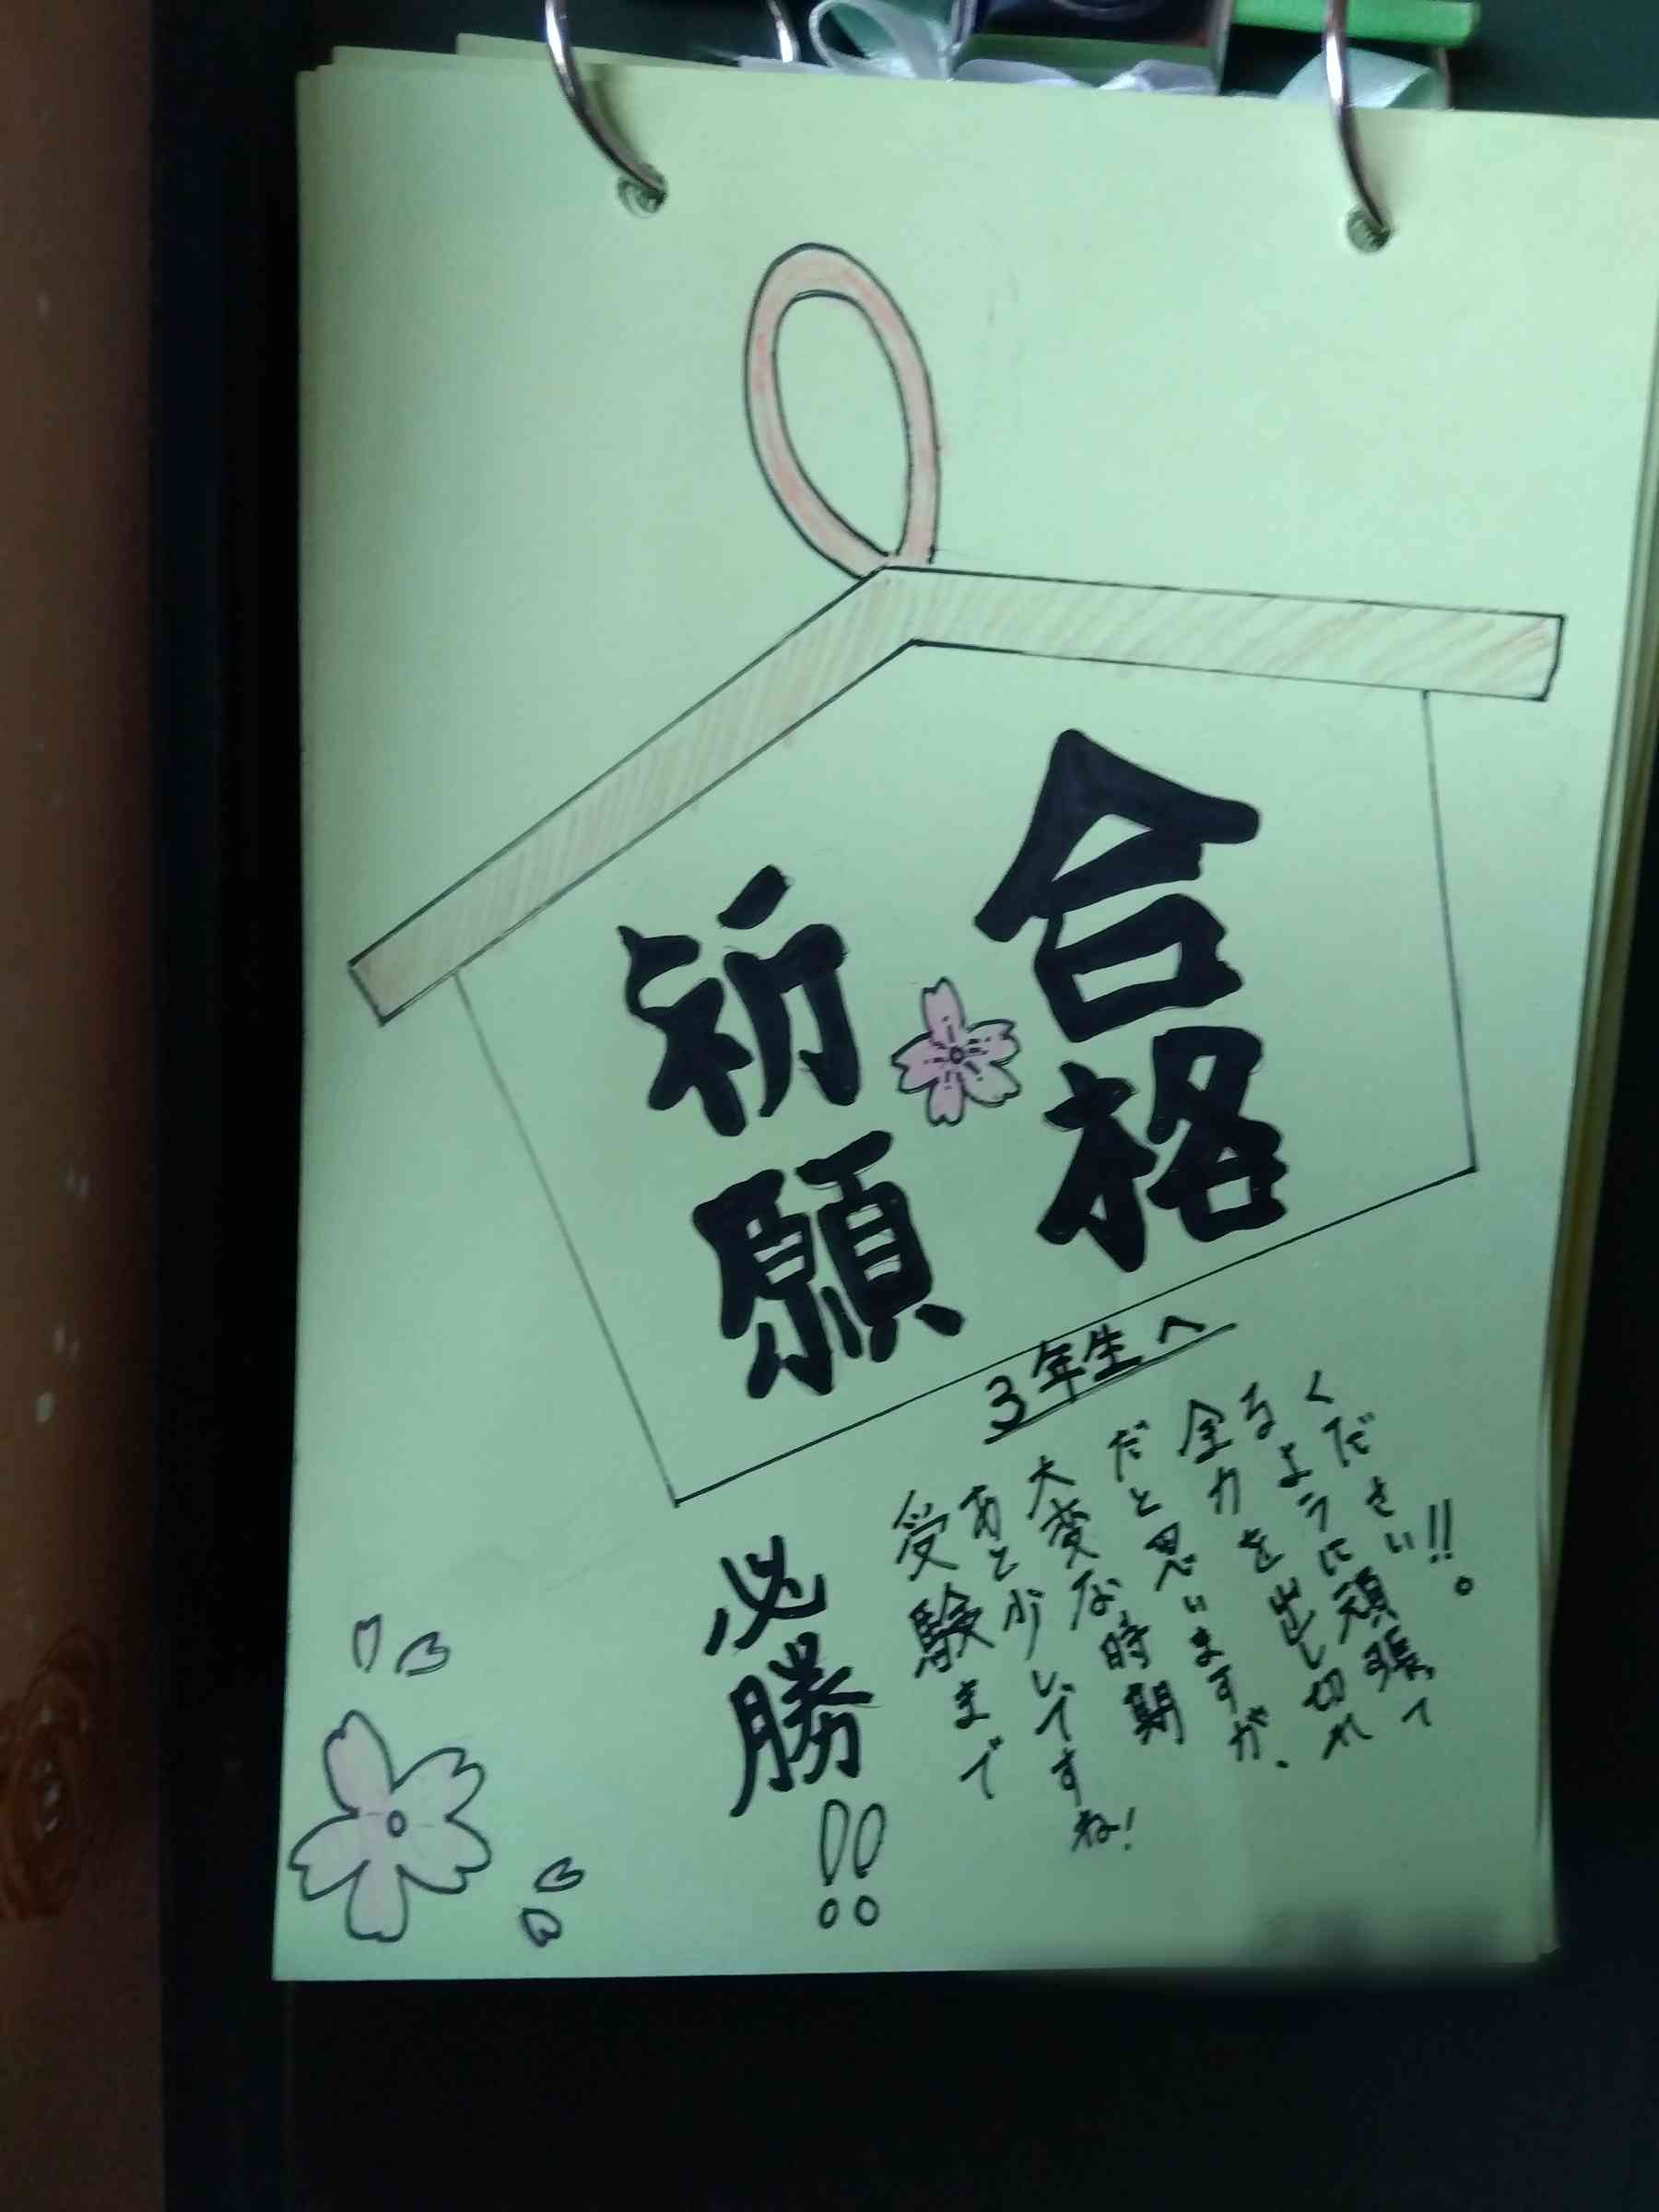 合格
祈願
3年生へ
受験まで
あと少しですね!
大変な時期
だと思いますが、
全力を出し切れ
るように頑張って
ください!!。
必勝!!